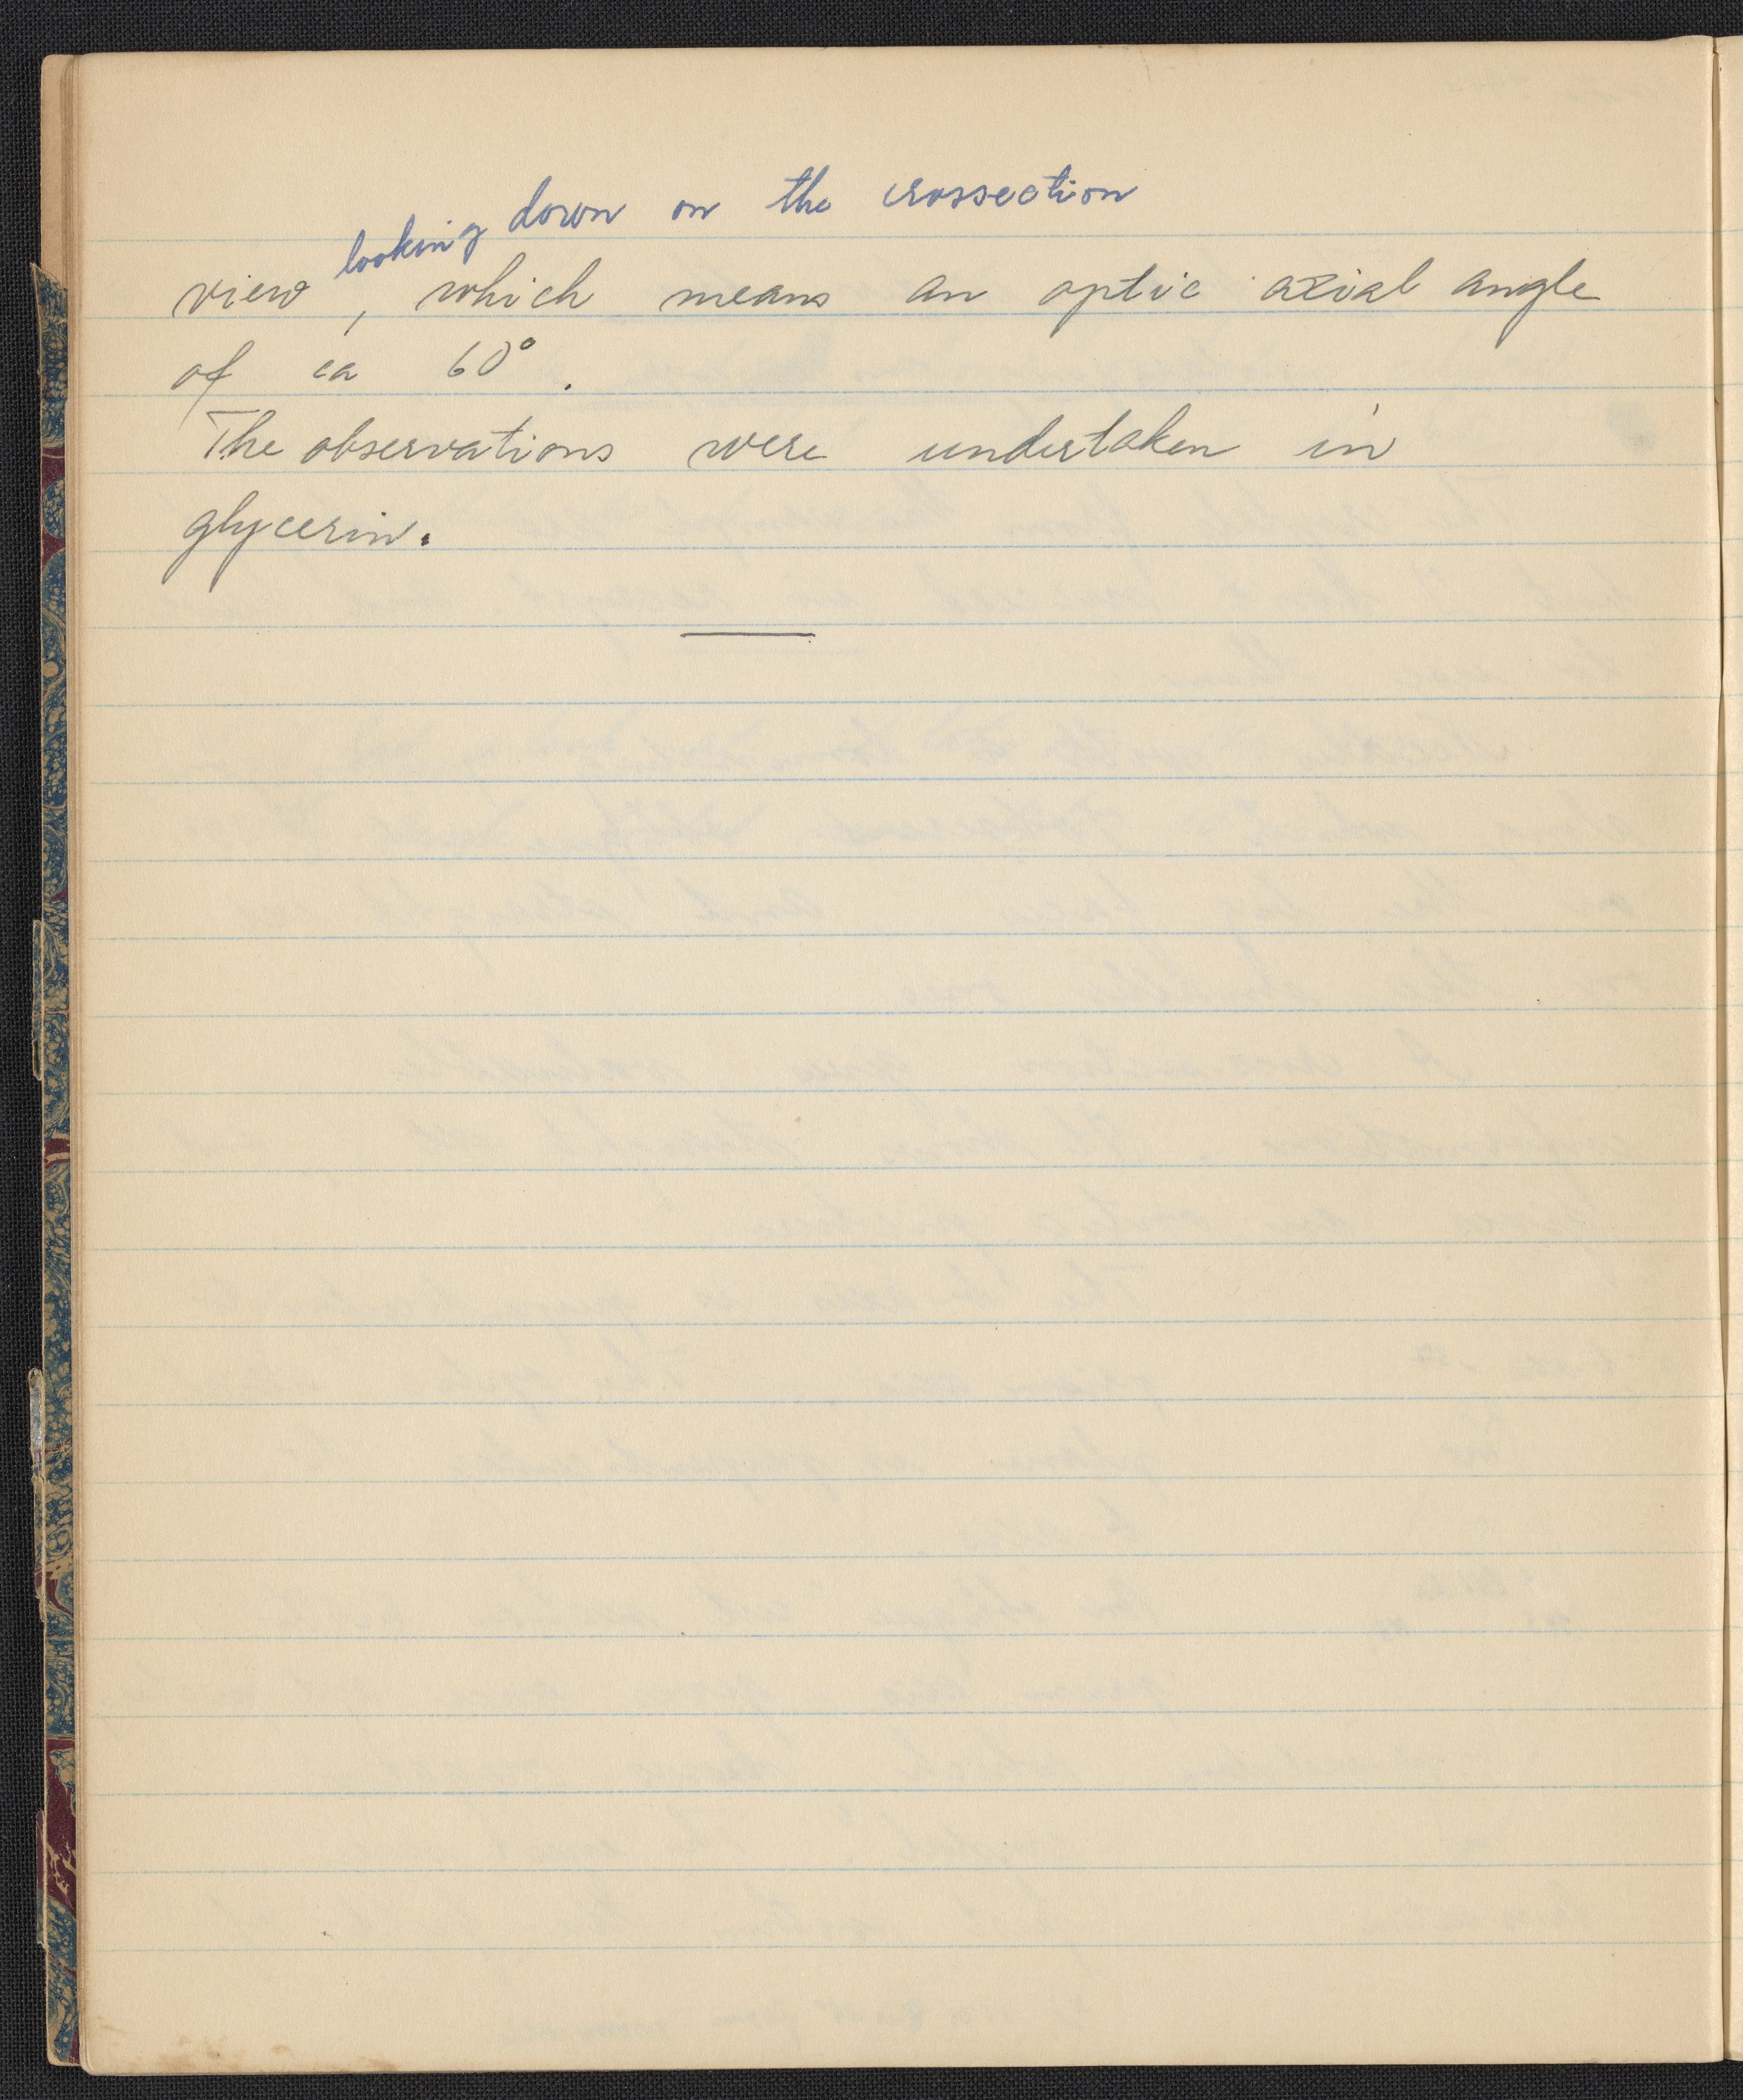 looking down on the crossection
view, which means an optic axial angle
of ca 60°.
The observations were undertaken in
glycerin.